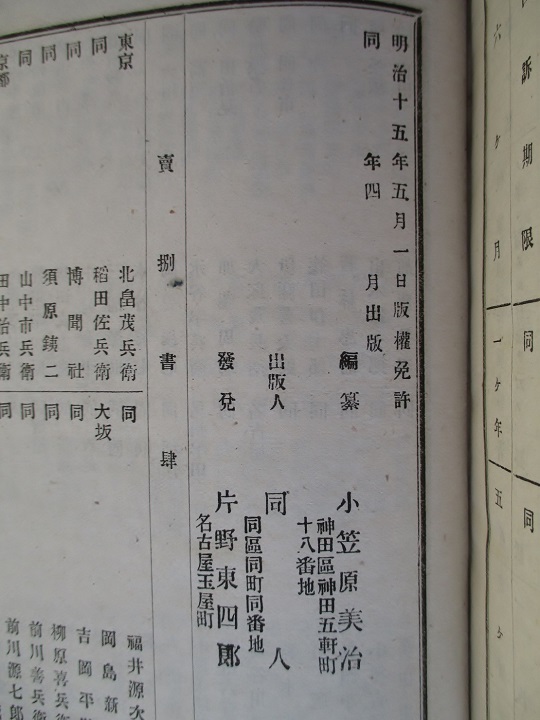 訴期限 同 同
六ケ月 一ケ年 五
明治十五年五月一日版權免許
同 年四 月出版
編纂 小笠原美治
神田區神田五軒町
十八番地
出版人 同 人
同區同町同番地
發兌 片野東四郎
名古屋玉屋町
賣捌書肆
東京 北畠茂兵衛 同 福井源次
同 稻田佐兵衛 大坂 岡島新
同 博聞社 同 吉岡平
同 須原鉄二 同 柳原喜兵衛
同 山中市兵衛 同 前川善兵衛
京都 田中治兵衛 同 前川源七郎